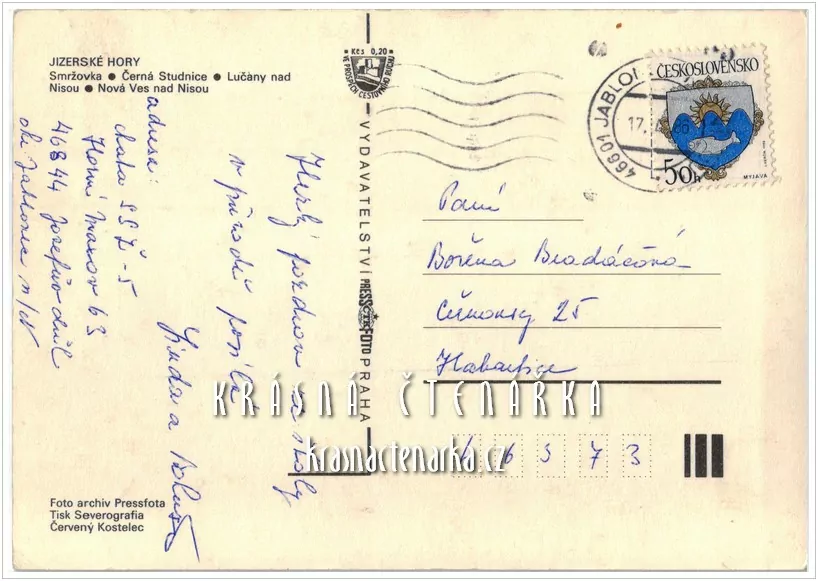 JIZERSKÉ HORY
Smržovka ● Černá Studnice ● Lučany nad
Nisou ● Nová Ves nad Nisou
Kčs 0,20
VE PROSPĚCH CESTOVNÍHO RUCHU
VYDAVATELSTVÍ PRESSFOTO PRAHA
46601 JABLON
17.
ČESKOSLOVENSKO
50h
MYJAVA
adresa:
chata
Horní 63
46844 Josefův důl
okr. Jablonec n/N
Hezký pozdrav ze školy
v přírodě posílá
Jindra a
Paní
Božena Bradáčová
25
Habartice
46373
KRÁSNÁ ČTENÁRKA
krasnactenarka.cz
Foto archiv Pressfota
Tisk Severografia
Červený Kostelec